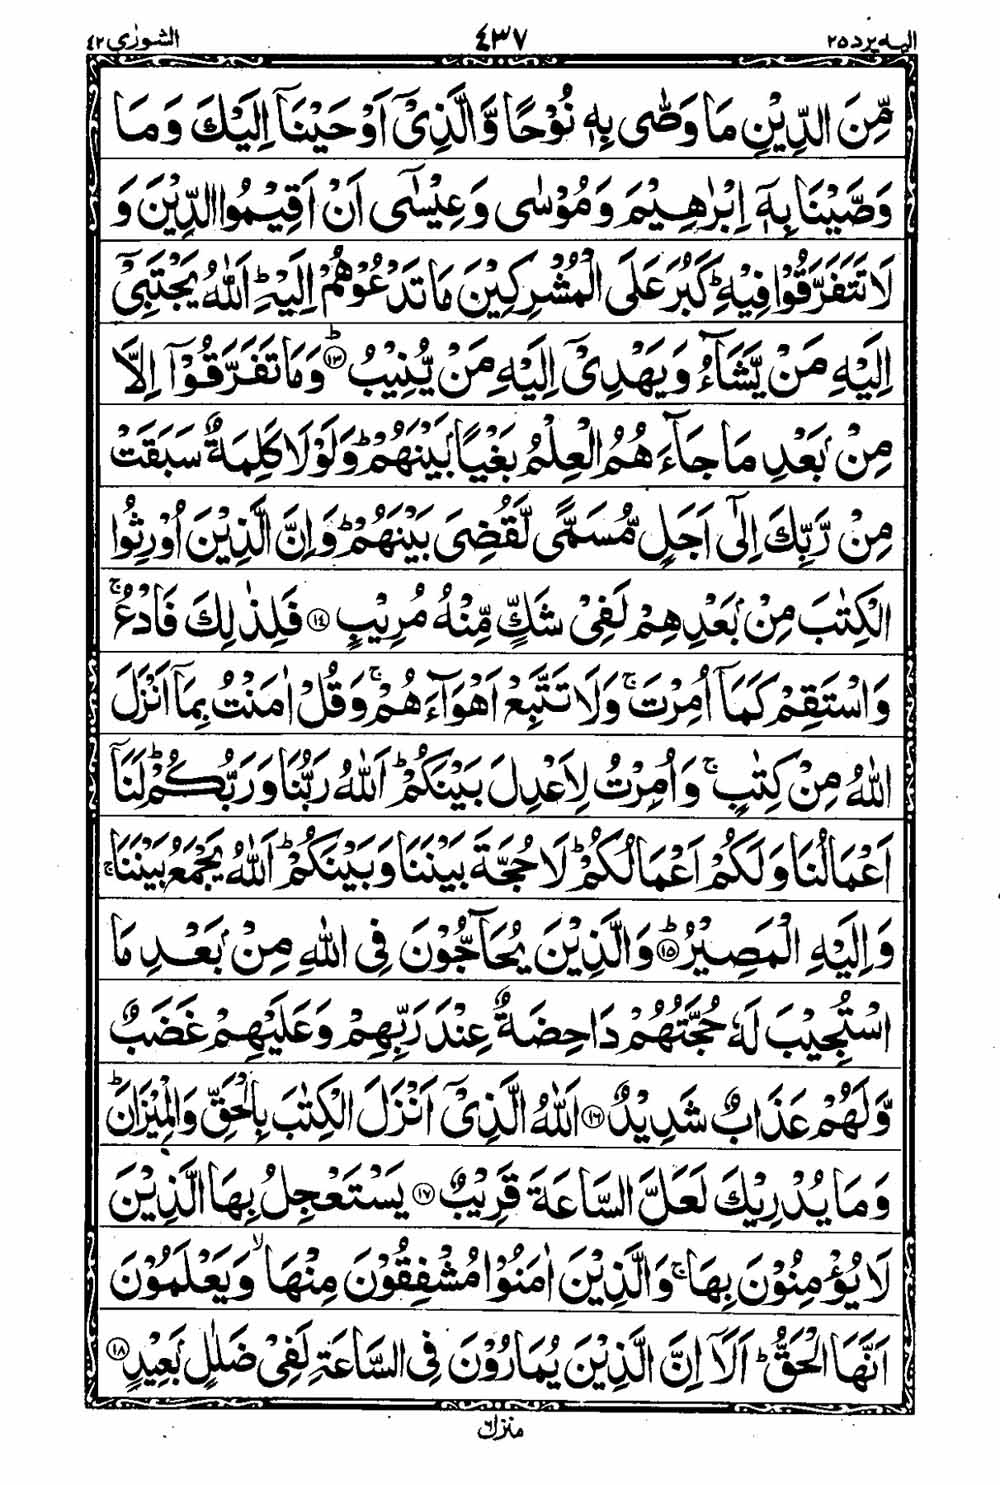 الیه یرد ٢٥ ٤٣٧ الشورٰی ٤٢
مِّنَ الدِّیْنِ مَا وَصّٰی بِهٖ نُوْحًا وَّالَّذِیْۤ اَوْحَیْنَاۤ اِلَیْكَ وَمَا
وَصَّیْنَا بِهٖۤ اِبْرٰهِیْمَ وَمُوْسٰی وَعِیْسٰۤی اَنْ اَقِیْمُوا الدِّیْنَ وَ
لَا تَتَفَرَّقُوْا فِیْهِ ؕ كَبُرَ عَلَی الْمُشْرِكِیْنَ مَا تَدْعُوْهُمْ اِلَیْهِ ؕ اَللّٰهُ یَجْتَبِیْۤ
اِلَیْهِ مَنْ یَّشَآءُ وَیَهْدِیْۤ اِلَیْهِ مَنْ یُّنِیْبُ ؕ﴿١٣﴾ وَمَا تَفَرَّقُوْۤا اِلَّا
مِنْۢ بَعْدِ مَا جَآءَهُمُ الْعِلْمُ بَغْیًۢا بَیْنَهُمْ ؕ وَلَوْلَا كَلِمَةٌ سَبَقَتْ
مِنْ رَّبِّكَ اِلٰۤی اَجَلٍ مُّسَمًّی لَّقُضِیَ بَیْنَهُمْ ؕ وَاِنَّ الَّذِیْنَ اُوْرِثُوا
الْكِتٰبَ مِنْۢ بَعْدِهِمْ لَفِیْ شَكٍّ مِّنْهُ مُرِیْبٍ ﴿١٤﴾ فَلِذٰلِكَ فَادْعُ ۚ
وَاسْتَقِمْ كَمَاۤ اُمِرْتَ ۚ وَلَا تَتَّبِعْ اَهْوَآءَهُمْ ۚ وَقُلْ اٰمَنْتُ بِمَاۤ اَنْزَلَ
اللّٰهُ مِنْ كِتٰبٍ ۚ وَاُمِرْتُ لِاَعْدِلَ بَیْنَكُمْ ؕ اَللّٰهُ رَبُّنَا وَرَبُّكُمْ ؕ لَنَاۤ
اَعْمَالُنَا وَلَكُمْ اَعْمَالُكُمْ ؕ لَا حُجَّةَ بَیْنَنَا وَبَیْنَكُمْ ؕ اَللّٰهُ یَجْمَعُ بَیْنَنَا ۚ
وَاِلَیْهِ الْمَصِیْرُ ؕ﴿١٥﴾ وَالَّذِیْنَ یُحَآجُّوْنَ فِی اللّٰهِ مِنْۢ بَعْدِ مَا
اسْتُجِیْبَ لَهٗ حُجَّتُهُمْ دَاحِضَةٌ عِنْدَ رَبِّهِمْ وَعَلَیْهِمْ غَضَبٌ
وَّلَهُمْ عَذَابٌ شَدِیْدٌ ﴿١٦﴾ اَللّٰهُ الَّذِیْۤ اَنْزَلَ الْكِتٰبَ بِالْحَقِّ وَالْمِیْزَانَ ؕ
وَمَا یُدْرِیْكَ لَعَلَّ السَّاعَةَ قَرِیْبٌ ﴿١٧﴾ یَسْتَعْجِلُ بِهَا الَّذِیْنَ
لَا یُؤْمِنُوْنَ بِهَا ۚ وَالَّذِیْنَ اٰمَنُوْا مُشْفِقُوْنَ مِنْهَا ۙ وَیَعْلَمُوْنَ
اَنَّهَا الْحَقُّ ؕ اَلَاۤ اِنَّ الَّذِیْنَ یُمَارُوْنَ فِی السَّاعَةِ لَفِیْ ضَلٰلٍۭ بَعِیْدٍ ﴿١٨﴾
منزل ٦